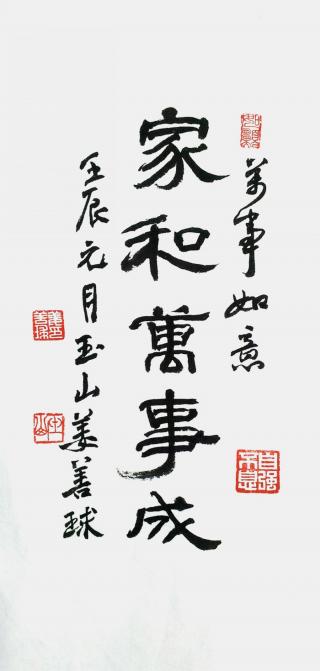 萬事如意
家和萬事成
壬辰元月玉山姜善球
自强不息